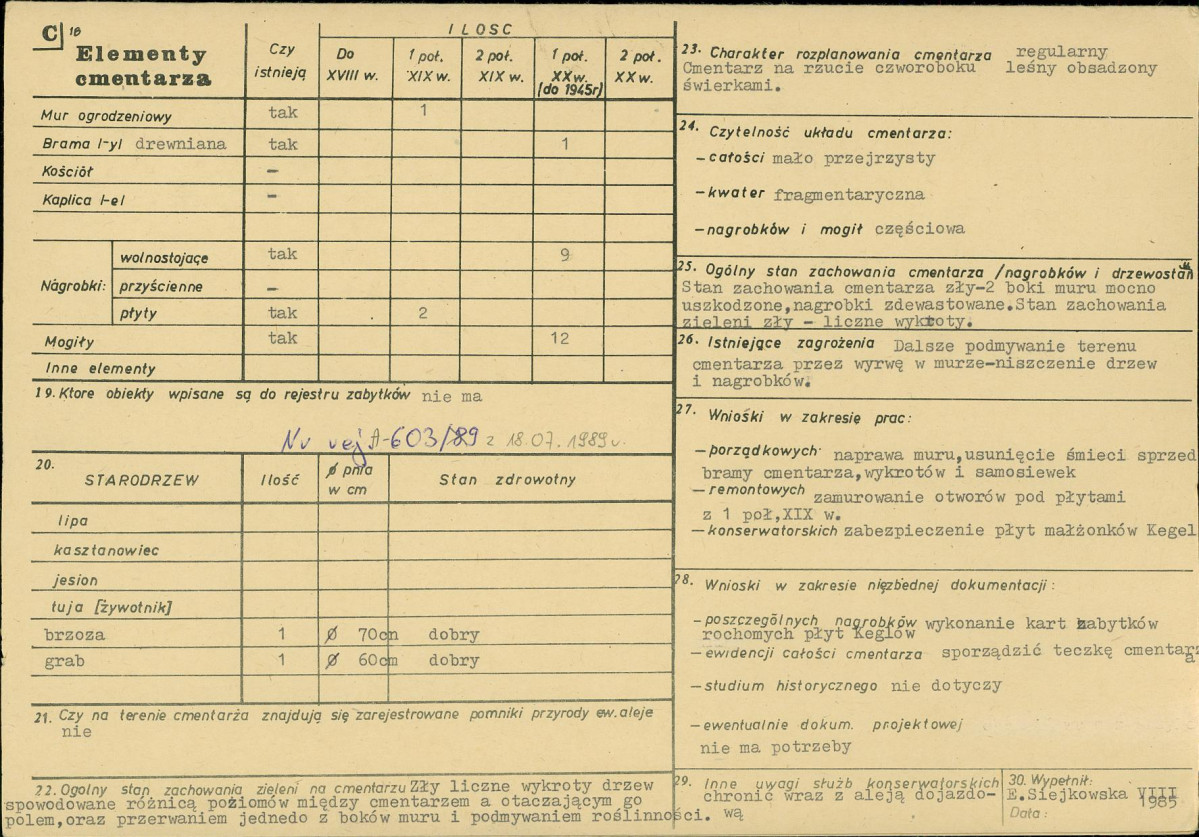 C 18
Elementy cmentarza
Czy istnieją
ILOSC
Do XVIII w.
1 poł. XIX w.
2 poł. XIX w.
1 poł. XX w. (do 1945r)
2 poł. XX w.
Mur ogrodzeniowy tak 1
Brama l-yl drewniana tak 1
Kościół –
Kaplica l-el –
Nagrobki:
wolnostojące tak 9
przyścienne –
płyty tak 2
Mogiły tak 12
Inne elementy
19. Ktore obiekty wpisane są do rejestru zabytków nie ma
Nr rej A-603/89 z 18.07.1989 r.
20.
STARODRZEW Ilość ø pnia w cm Stan zdrowotny
lipa
kasztanowiec
jesion
tuja [żywotnik]
brzoza 1 ø 70cm dobry
grab 1 ø 60cm dobry
21. Czy na terenie cmentarza znajdują się zarejestrowane pomniki przyrody ew. aleje
nie
22. Ogolny stan zachowania zieleni na cmentarzu Zły liczne wykroty drzew
spowodowane różnicą poziomów między cmentarzem a otaczającym go
polem,oraz przerwaniem jednedo z boków muru i podmywaniem roślinności.
23. Charakter rozplanowania cmentarza regularny
Cmentarz na rzucie czworoboku leśny obsadzony
świerkami.
24. Czytelność układu cmentarza:
– całości mało przejrzysty
– kwater fragmentaryczna
– nagrobków i mogił częściowa
25. Ogólny stan zachowania cmentarza /nagrobków i drzewostan
Stan zachowania cmentarza zły-2 boki muru mocno
uszkodzone,nagrobki zdewastowane.Stan zachowania
zieleni zły – liczne wykroty.
26. Istniejące zagrożenia Dalsze podmywanie terenu
cmentarza przez wyrwę w murze-niszczenie drzew
i nagrobków.
27. Wnioski w zakresie prac:
– porządkowych naprawa muru,usunięcie śmieci sprzed
bramy cmentarza,wykrotów i samosiewek
– remontowych zamurowanie otworów pod płytami
z 1 poł,XIX w.
– konserwatorskich zabezpieczenie płyt małżonków Kegel
28. Wnioski w zakresie niezbednej dokumentacji:
– poszczególnych nagrobków wykonanie kart zabytków
rochomych płyt Keglów
– ewidencji całości cmentarza sporządzić teczkę cmentarza
– studium historycznego nie dotyczy
– ewentualnie dokum. projektowej
nie ma potrzeby
29. Inne uwagi służb konserwatorskich
chronić wraz z aleją dojazdo-
wą
30. Wypełnił:
E.Siejkowska VIII
1985
Data: